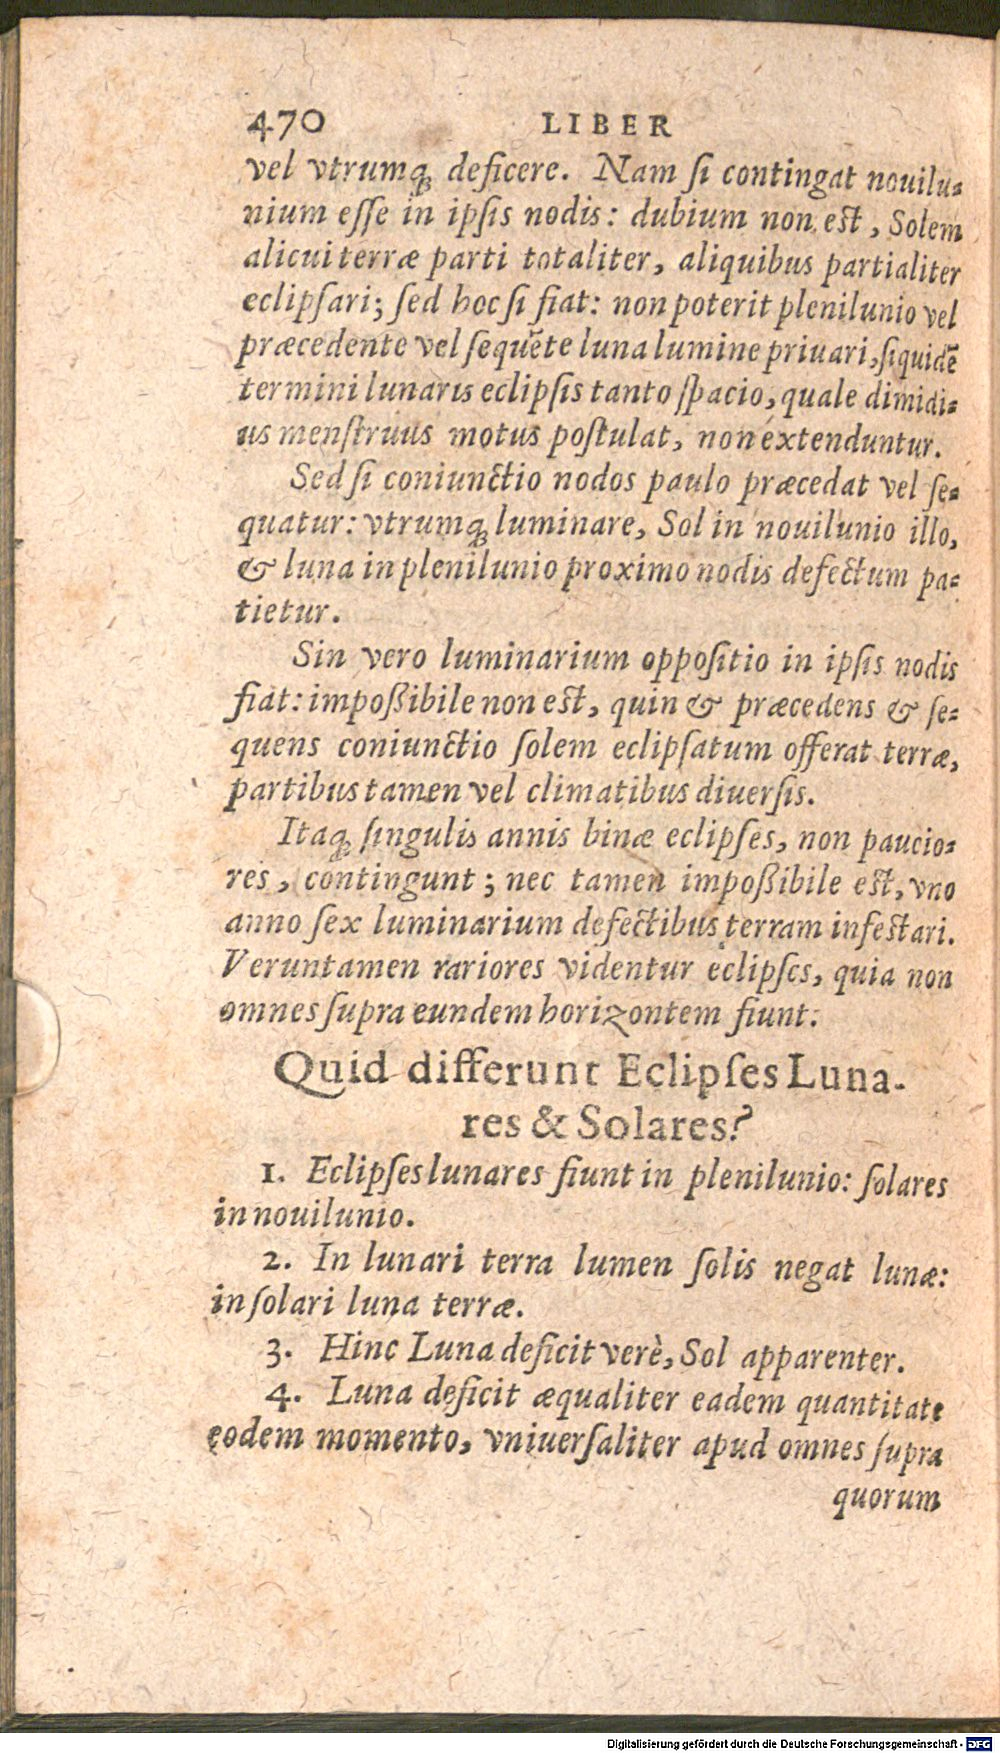 470 LIBER
vel vtrumq́; deficere. Nam ſi contingat nouilu-
nium eſſe in ipſis nodis: dubium non eſt, Solem
alicui terræ parti totaliter, aliquibus partialiter
eclipſari; ſed hoc ſi fiat: non poterit plenilunio vel
præcedente vel ſequẽte luna lumine priuari, ſiquidẽ
termini lunaris eclipſis tanto ſpacio, quale dimidi-
us menſtruus motus poſtulat, non extenduntur.
Sed ſi coniunctio nodos paulo præcedat vel ſe-
quatur: vtrumq́; luminare, Sol in nouilunio illo,
& luna in plenilunio proximo nodis defectum pa-
tietur.
Sin vero luminarium oppoſitio in ipſis nodis
fiat: impoßibile non eſt, quin & præcedens & ſe-
quens coniunctio ſolem eclipſatum offerat terræ,
partibus tamen vel climatibus diuerſis.
Itaq́; ſingulis annis binæ eclipſes, non paucio-
res, contingunt; nec tamen impoßibile eſt, vno
anno ſex luminarium defectibus terram infeſtari.
Veruntamen rariores videntur eclipſes, quia non
omnes ſupra eundem horizontem fiunt.
Quid differunt Eclipſes Luna-
res & Solares?
1. Eclipſes lunares fiunt in plenilunio: ſolares
in nouilunio.
2. In lunari terra lumen ſolis negat lunæ:
in ſolari luna terræ.
3. Hinc Luna deficit verè, Sol apparenter.
4. Luna deficit æqualiter eadem quantitate
eodem momento, vniuerſaliter apud omnes ſupra
quorum
Digitalisierung gefördert durch die Deutsche Forschungsgemeinschaft - DFG